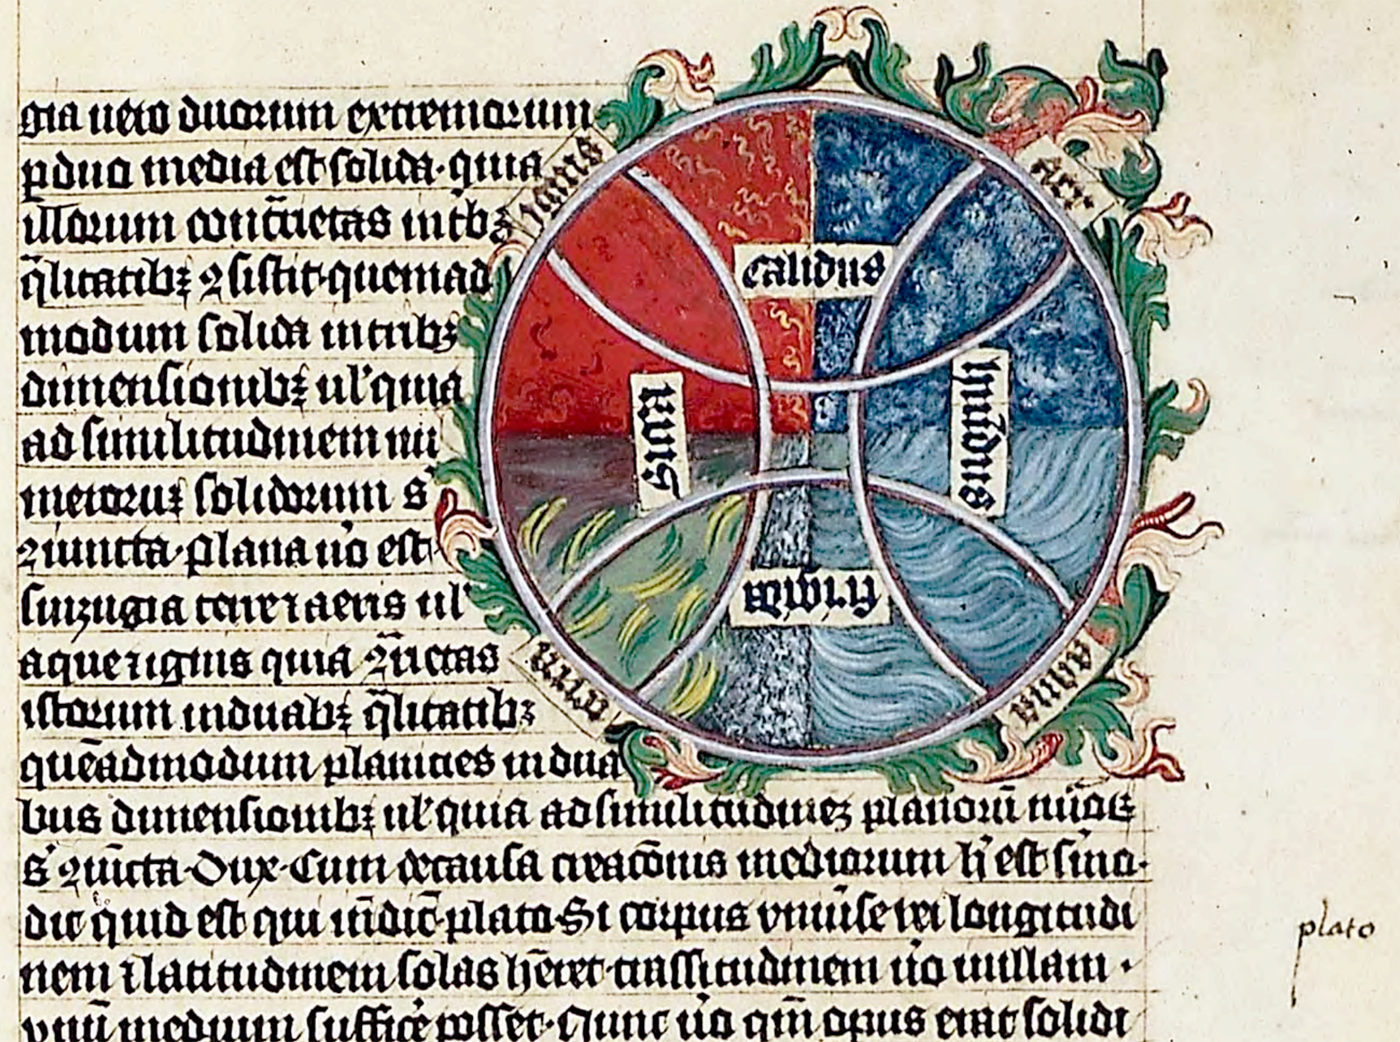 gia uero duorum extremorum
p duo media est solida · quia
illorum cont̄rietas in t'bꝫ
q̄litatibꝫ ꝯsistit · quemad
modum solida in tribꝫ
dimensionibꝫ ul' quia
ad similitudinem nu
meroruꝫ solidorum s̄
ꝯiuncta · plana u̓o est
suzugia terre ⁊ aeris ul'
aque ⁊ ignis quia ꝯn̄etas
istorum in duabꝫ q̄litatibꝫ
quēadmodum planicies in dua
bus dimensionibꝫ ul' quia ad similitudineꝫ planorū
s̄ ꝯiūcta · Dux · Cum de causa creacōnis mediorum h̓ est
dic quid est qui īndic̄ · plato · Si corpus vniuerse rei longitudi
nem ⁊ latitudinem solas h̄eret crassitudinem u̓o nullam ·
vnū medium suffice̓ posset · Nunc u̓o qm̄ opus erat solidi
ignis
aer
calidus
siccus
humidus
frigida
terra
aqua
plato